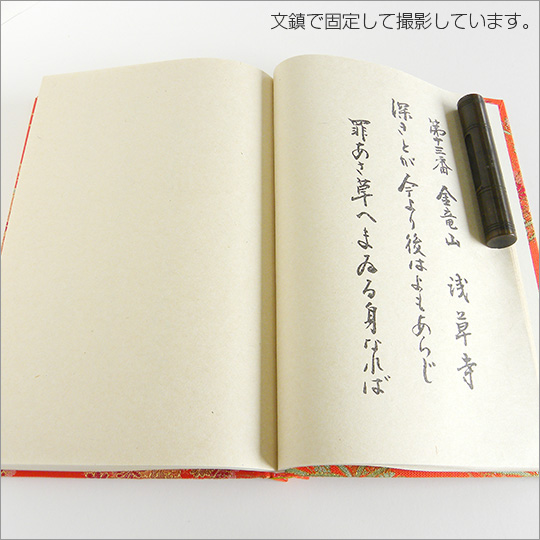 文鎮で固定して撮影しています。
第十三番 金竜山 浅草寺
深きとが今より後はよもあらじ
罪あさ草へまゐる身なれば